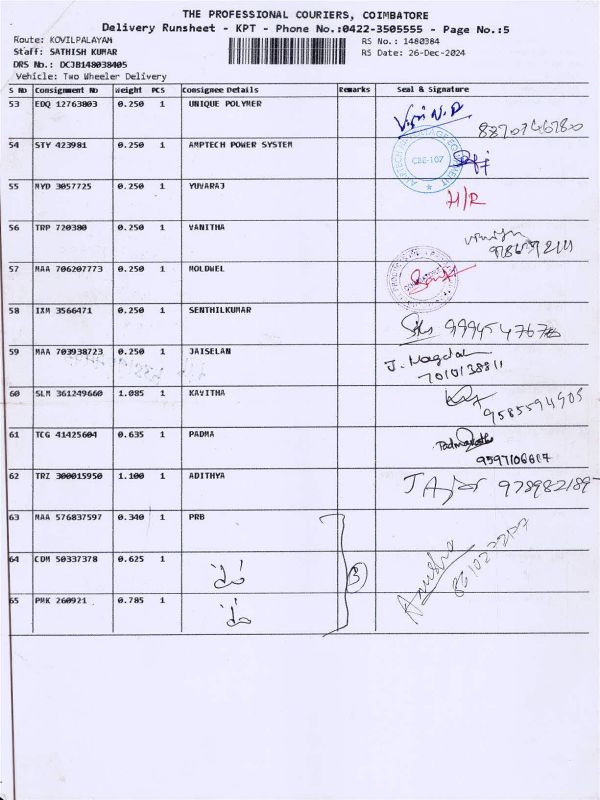 THE PROFESSIONAL COURIERS, COIMBATORE
Delivery Runsheet - KPT - Phone No.:0422-3505555 - Page No.:5
Route: KOVILPALAYAM
RS No.: 1480384
Staff: SATHISH KUMAR
RS Date: 26-Dec-2024
DRS No.: DCJB148038405
Vehicle: Two Wheeler Delivery
S No Consignment No Weight PCS Consignee Details Remarks Seal & Signature
53 EDQ 12763803 0.250 1 UNIQUE POLYMER
54 STY 423981 0.250 1 AMPTECH POWER SYSTEM
CBE-107
55 MYD 3057725 0.250 1 YUVARAJ H/R
56 TRP 720380 0.250 1 VANITHA
57 MAA 706207773 0.250 1 MOLDWEL
58 IXM 3566471 0.250 1 SENTHILKUMAR
59 MAA 703938723 0.250 1 JAISELAN
7010138811
60 SLM 361249660 1.085 1 KAVITHA 9585594905
61 TCG 41425604 0.635 1 PADMA
62 TRZ 300015950 1.100 1 ADITHYA
63 MAA 576837597 0.340 1 PRB
64 CDM 50337378 0.625 1
3
Anusha
65 PMK 260921 0.785 1